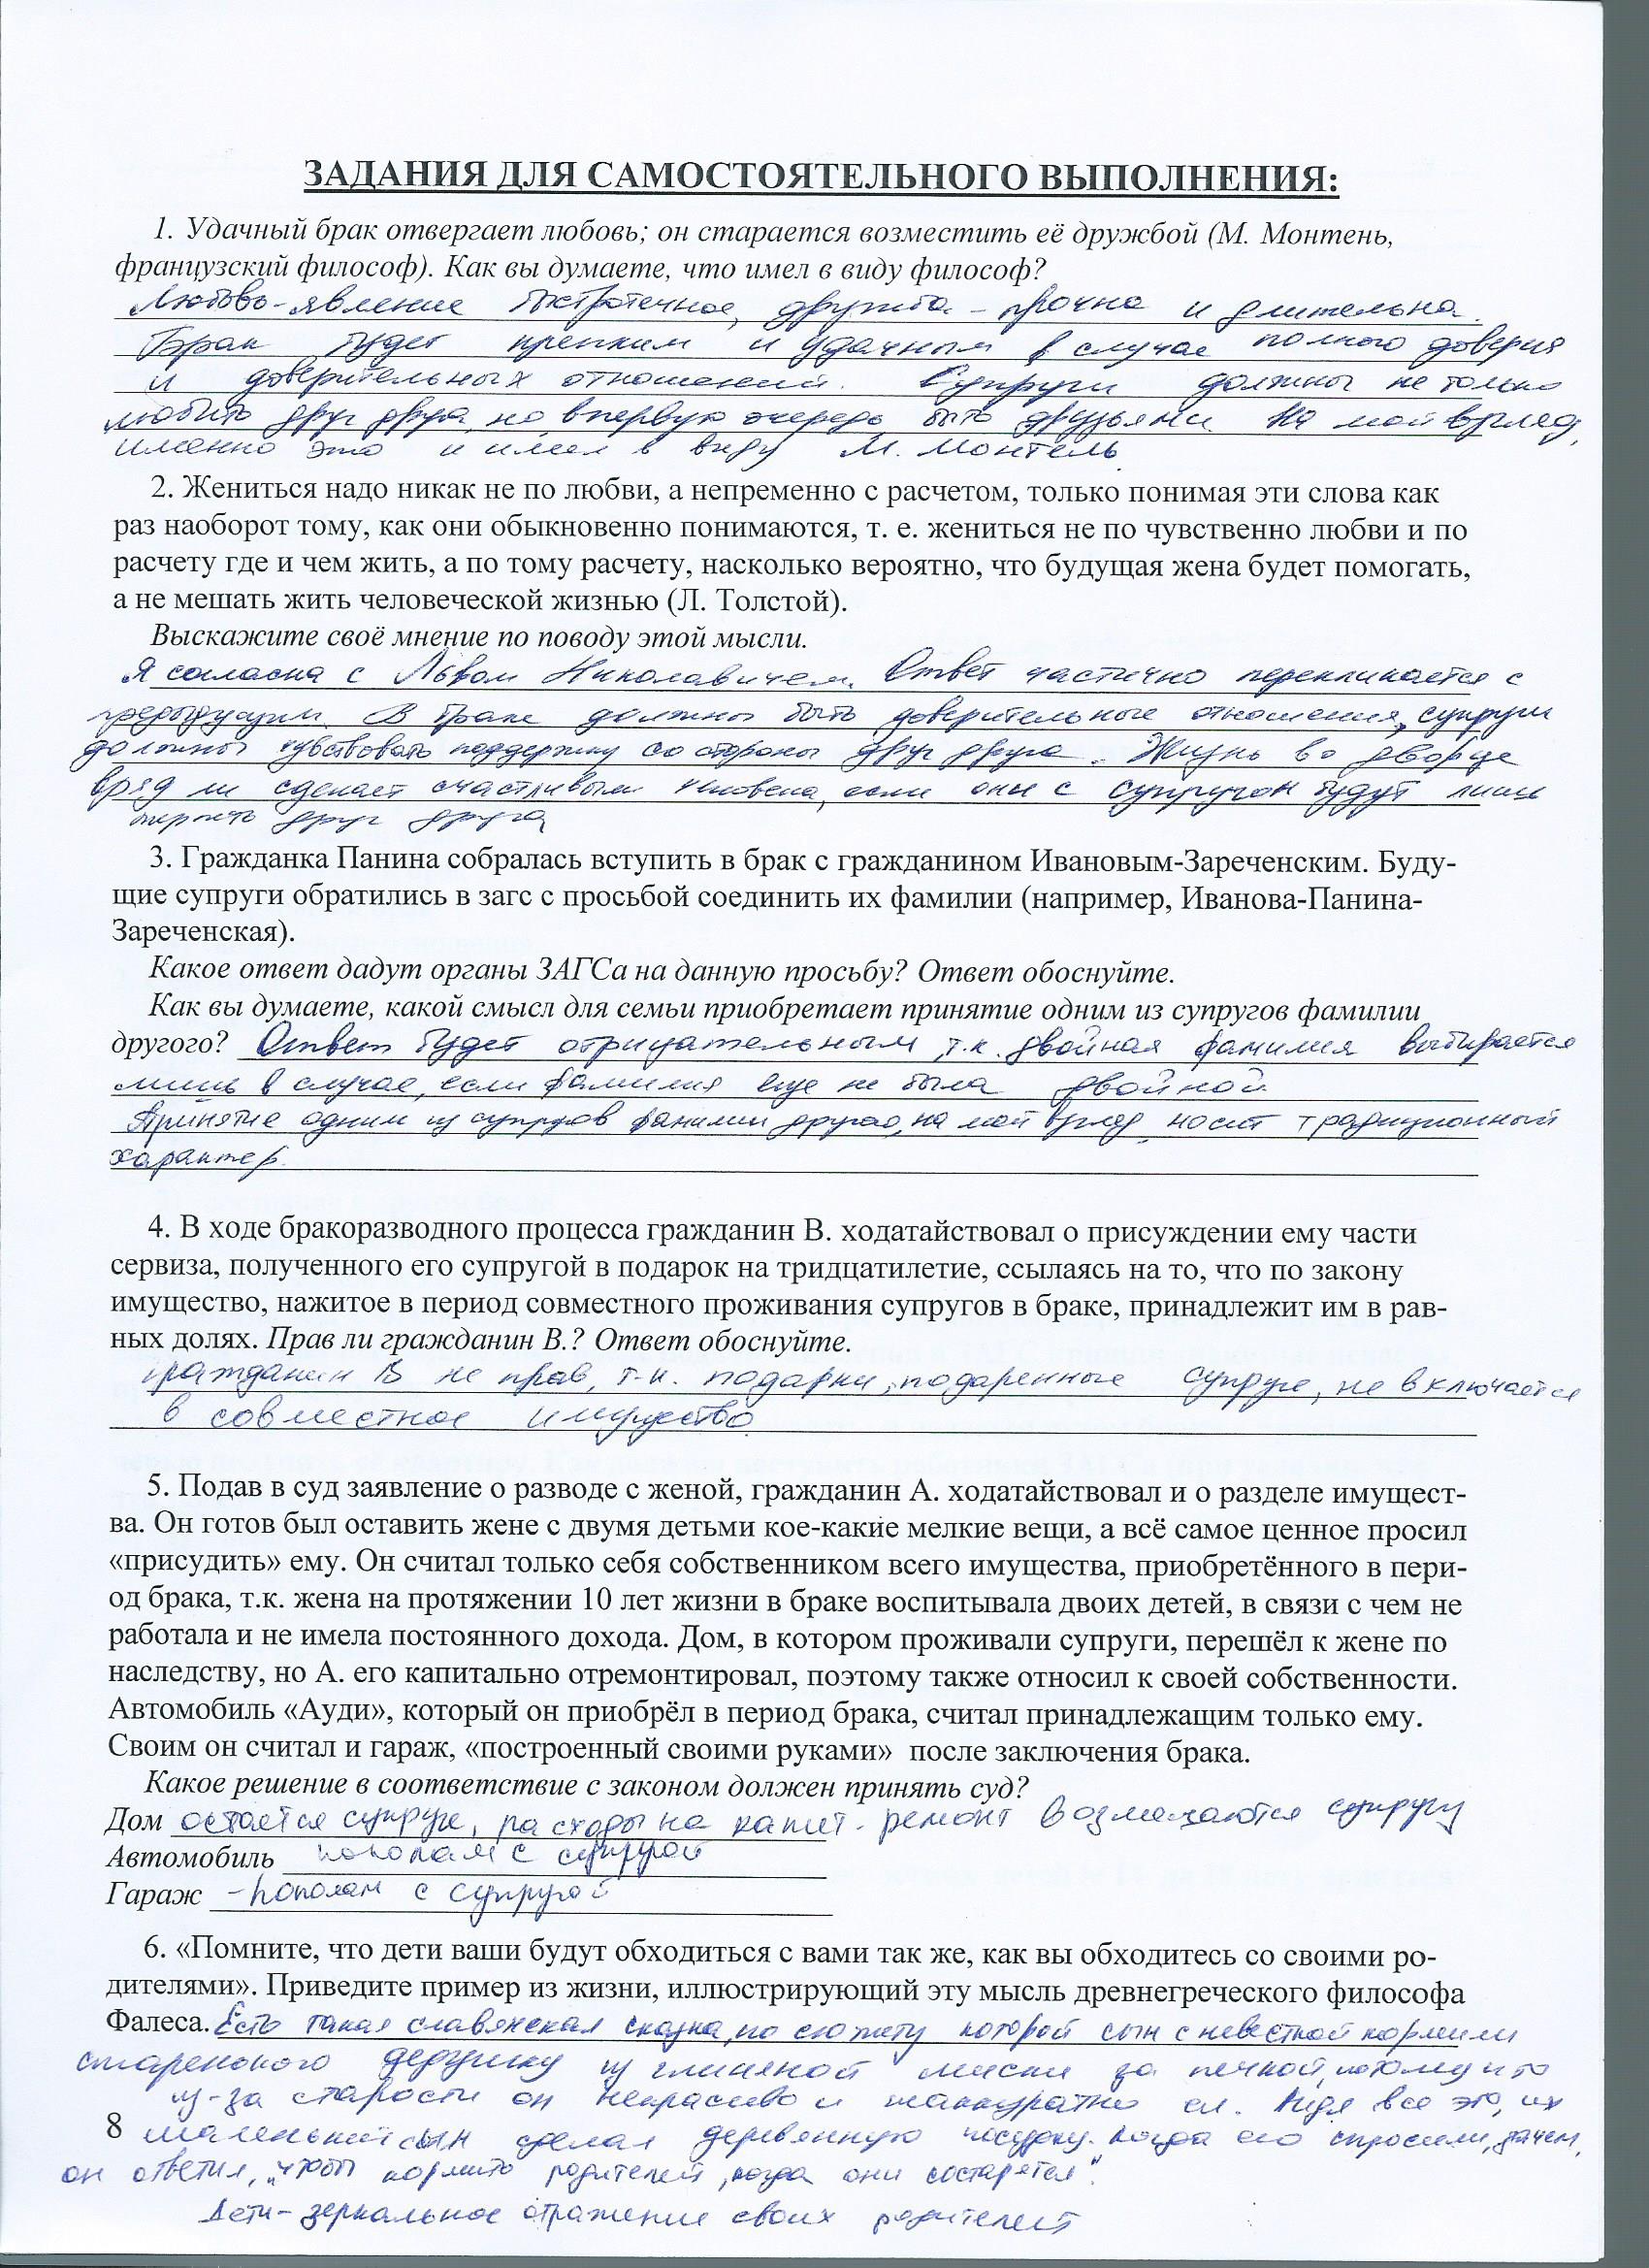 ЗАДАНИЯ ДЛЯ САМОСТОЯТЕЛЬНОГО ВЫПОЛНЕНИЯ:
1. Удачный брак отвергает любовь; он старается возместить её дружбой (М. Монтень,
французский философ). Как вы думаете, что имел в виду философ?
Любовь-явление быстротечное, дружба - прочна и длительна.
Брак будет крепким и удачным в случае полного доверия
и доверительных отношений. Супруги должны не только
любить друг друга, но в первую очередь быть друзьями. На мой взгляд,
именно это и имел в виду М. Монтель.
2. Жениться надо никак не по любви, а непременно с расчетом, только понимая эти слова как
раз наоборот тому, как они обыкновенно понимаются, т. е. жениться не по чувственно любви и по
расчету где и чем жить, а по тому расчету, насколько вероятно, что будущая жена будет помогать,
а не мешать жить человеческой жизнью (Л. Толстой).
Выскажите своё мнение по поводу этой мысли.
Я согласна с Львом Николавичем. Ответ частично перекликается с
предыдущим. В браке должны быть доверительные отношения, супруги
должны чувствовать поддержку со стороны друг друга. Жизнь во дворце
вряд ли сделает счастливым человека, если они с супругом будут лишь
терпеть друг друга
3. Гражданка Панина собралась вступить в брак с гражданином Ивановым-Зареченским. Буду-
щие супруги обратились в загс с просьбой соединить их фамилии (например, Иванова-Панина-
Зареченская).
Какое ответ дадут органы ЗАГСа на данную просьбу? Ответ обоснуйте.
Как вы думаете, какой смысл для семьи приобретает принятие одним из супругов фамилии
другого? Ответ будет отрицательным, т.к. двойная фамилия выбирается
лишь в случае, если фамилия еще не была двойной
Принятие одним из супругов фамилии другого, на мой взгляд, носит традиционный
характер.
4. В ходе бракоразводного процесса гражданин В. ходатайствовал о присуждении ему части
сервиза, полученного его супругой в подарок на тридцатилетие, ссылаясь на то, что по закону
имущество, нажитое в период совместного проживания супругов в браке, принадлежит им в рав-
ных долях. Прав ли гражданин В.? Ответ обоснуйте.
гражданин В не прав, т.к. подарки, подаренные супруге, не включается
в совместное имущество
5. Подав в суд заявление о разводе с женой, гражданин А. ходатайствовал и о разделе имущест-
ва. Он готов был оставить жене с двумя детьми кое-какие мелкие вещи, а всё самое ценное просил
«присудить» ему. Он считал только себя собственником всего имущества, приобретённого в пери-
од брака, т.к. жена на протяжении 10 лет жизни в браке воспитывала двоих детей, в связи с чем не
работала и не имела постоянного дохода. Дом, в котором проживали супруги, перешёл к жене по
наследству, но А. его капитально отремонтировал, поэтому также относил к своей собственности.
Автомобиль «Ауди», который он приобрёл в период брака, считал принадлежащим только ему.
Своим он считал и гараж, «построенный своими руками» после заключения брака.
Какое решение в соответствие с законом должен принять суд?
Дом остается супруге, расходы на капит. ремонт возмещаются супругу
Автомобиль пополам с супругой
Гараж - пополам с супругой
6. «Помните, что дети ваши будут обходиться с вами так же, как вы обходитесь со своими ро-
дителями». Приведите пример из жизни, иллюстрирующий эту мысль древнегреческого философа
Фалеса. Есть такая славянская сказка, по сюжету которой сын с невесткой кормили
старенького дедушку из глиняной миски за печкой, потому что
из-за старости он некрасиво и неаккуратно ел. Видя все это, их
8 маленький сын сделал деревянную посудку. Когда его спросили, зачем,
он ответил, „чтобы кормить родителей, когда они состарятся".
Дети - зеркальное отражение своих родителей